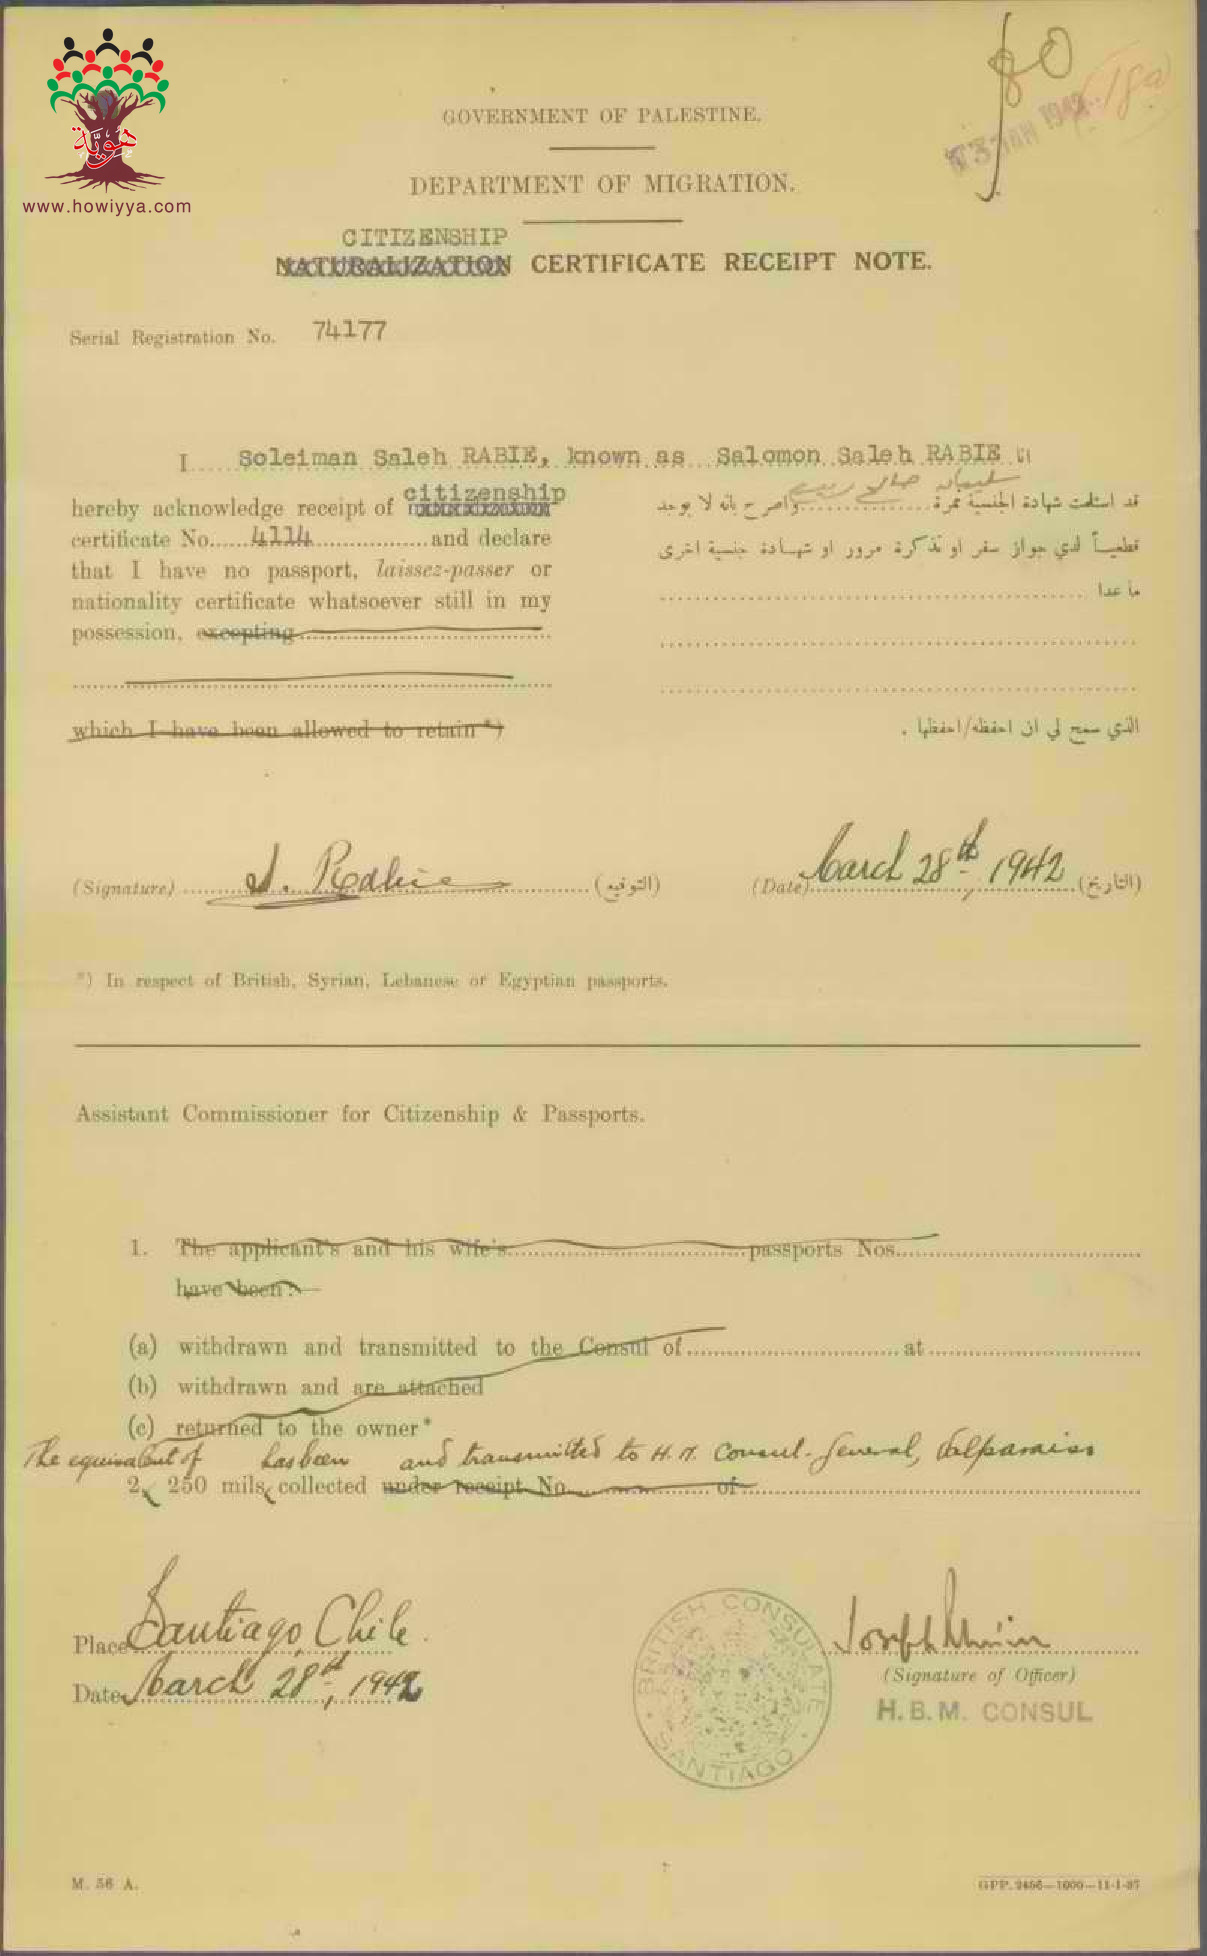 هويّة
www.howiyya.com
80
18a
13 JAN 1942
GOVERNMENT OF PALESTINE.
DEPARTMENT OF MIGRATION.
CITIZENSHIP
NATURALIZATION CERTIFICATE RECEIPT NOTE.
Serial Registration No. 74177
I Soleiman Saleh RABIE, known as Salomon Saleh RABIE انا
سليمان صالح ربيع
hereby acknowledge receipt of citizenship
certificate No. 4114 and declare
that I have no passport, laissez-passer or
nationality certificate whatsoever still in my
possession, excepting
which I have been allowed to retain *)
قد استلمت شهادة الجنسية نمرة واصرح بانه لا يوجد
قطعياً لدي جواز سفر او تذكرة مرور او شهادة جنسية اخرى
ما عدا
الذي سمح لي ان احفظه/احفظها .
(Signature) S. Rabie (التوقيع)
(Date) March 28th, 1942 (التاريخ)
*) In respect of British, Syrian, Lebanese or Egyptian passports.
Assistant Commissioner for Citizenship & Passports.
1. The applicant's and his wife's passports Nos.
have been:—
(a) withdrawn and transmitted to the Consul of at
(b) withdrawn and are attached
(c) returned to the owner*
The equivalent of has been and transmitted to H.M. Consul-General, Valparaiso
2. 250 mils collected under receipt No. of
Place Santiago, Chile.
Date March 28th, 1942
BRITISH CONSULATE
SANTIAGO
(Signature of Officer)
H.B.M. CONSUL
M. 56 A.
GPP. 2456—1000—11-1-37